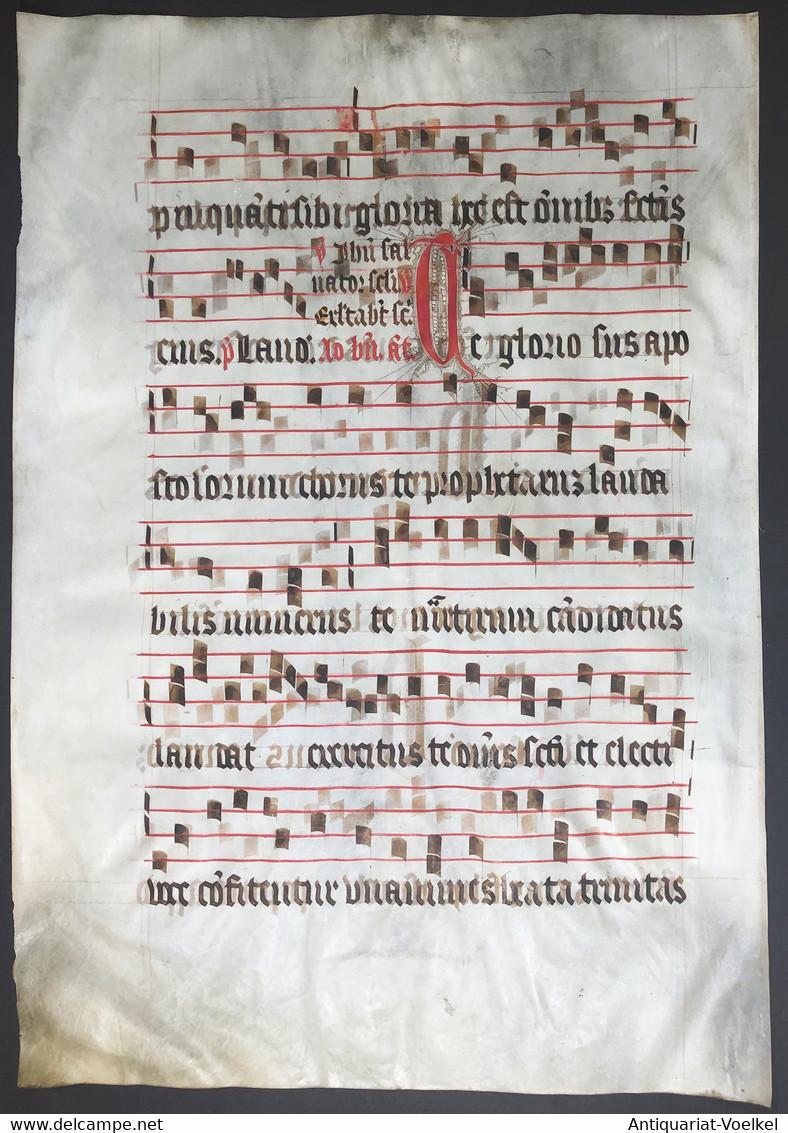 p cuquāti sibi gloria hec est ōnibꝫ sctīs
p Jhū sal
uator scliv
Exſ'tabt sc̄
eius. p Laud. Ao bn̄. āt. Te glorio sus apo
stolorum chorus te prophetarum lauda
bilis numerus te mr̄tirum cādidatus
laudat exercitus te om̄s scti et electi
uoce cōfitentur vnanimes beata trinitas
Antiquariat-Voelkel